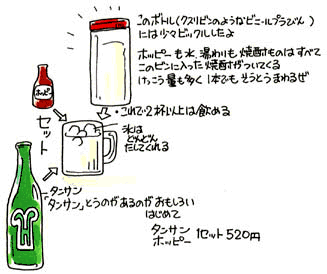 このボトル(クスリビンのようなビニールプラびん)
には少々ビックルしたよ
ホッピーも水、湯わりも焼酎ものはすべて
このビンに入った焼酎がついてくる
けっこう量も多く1本でもそうとうまわるぜ
ホッピー
・これで2杯以上は飲める
セット
氷は
どんどん
だしてくれる
タンサン
「タンサン」とうのがあるのがおもしろい
はじめて
タンサン
ホッピー 1セット520円